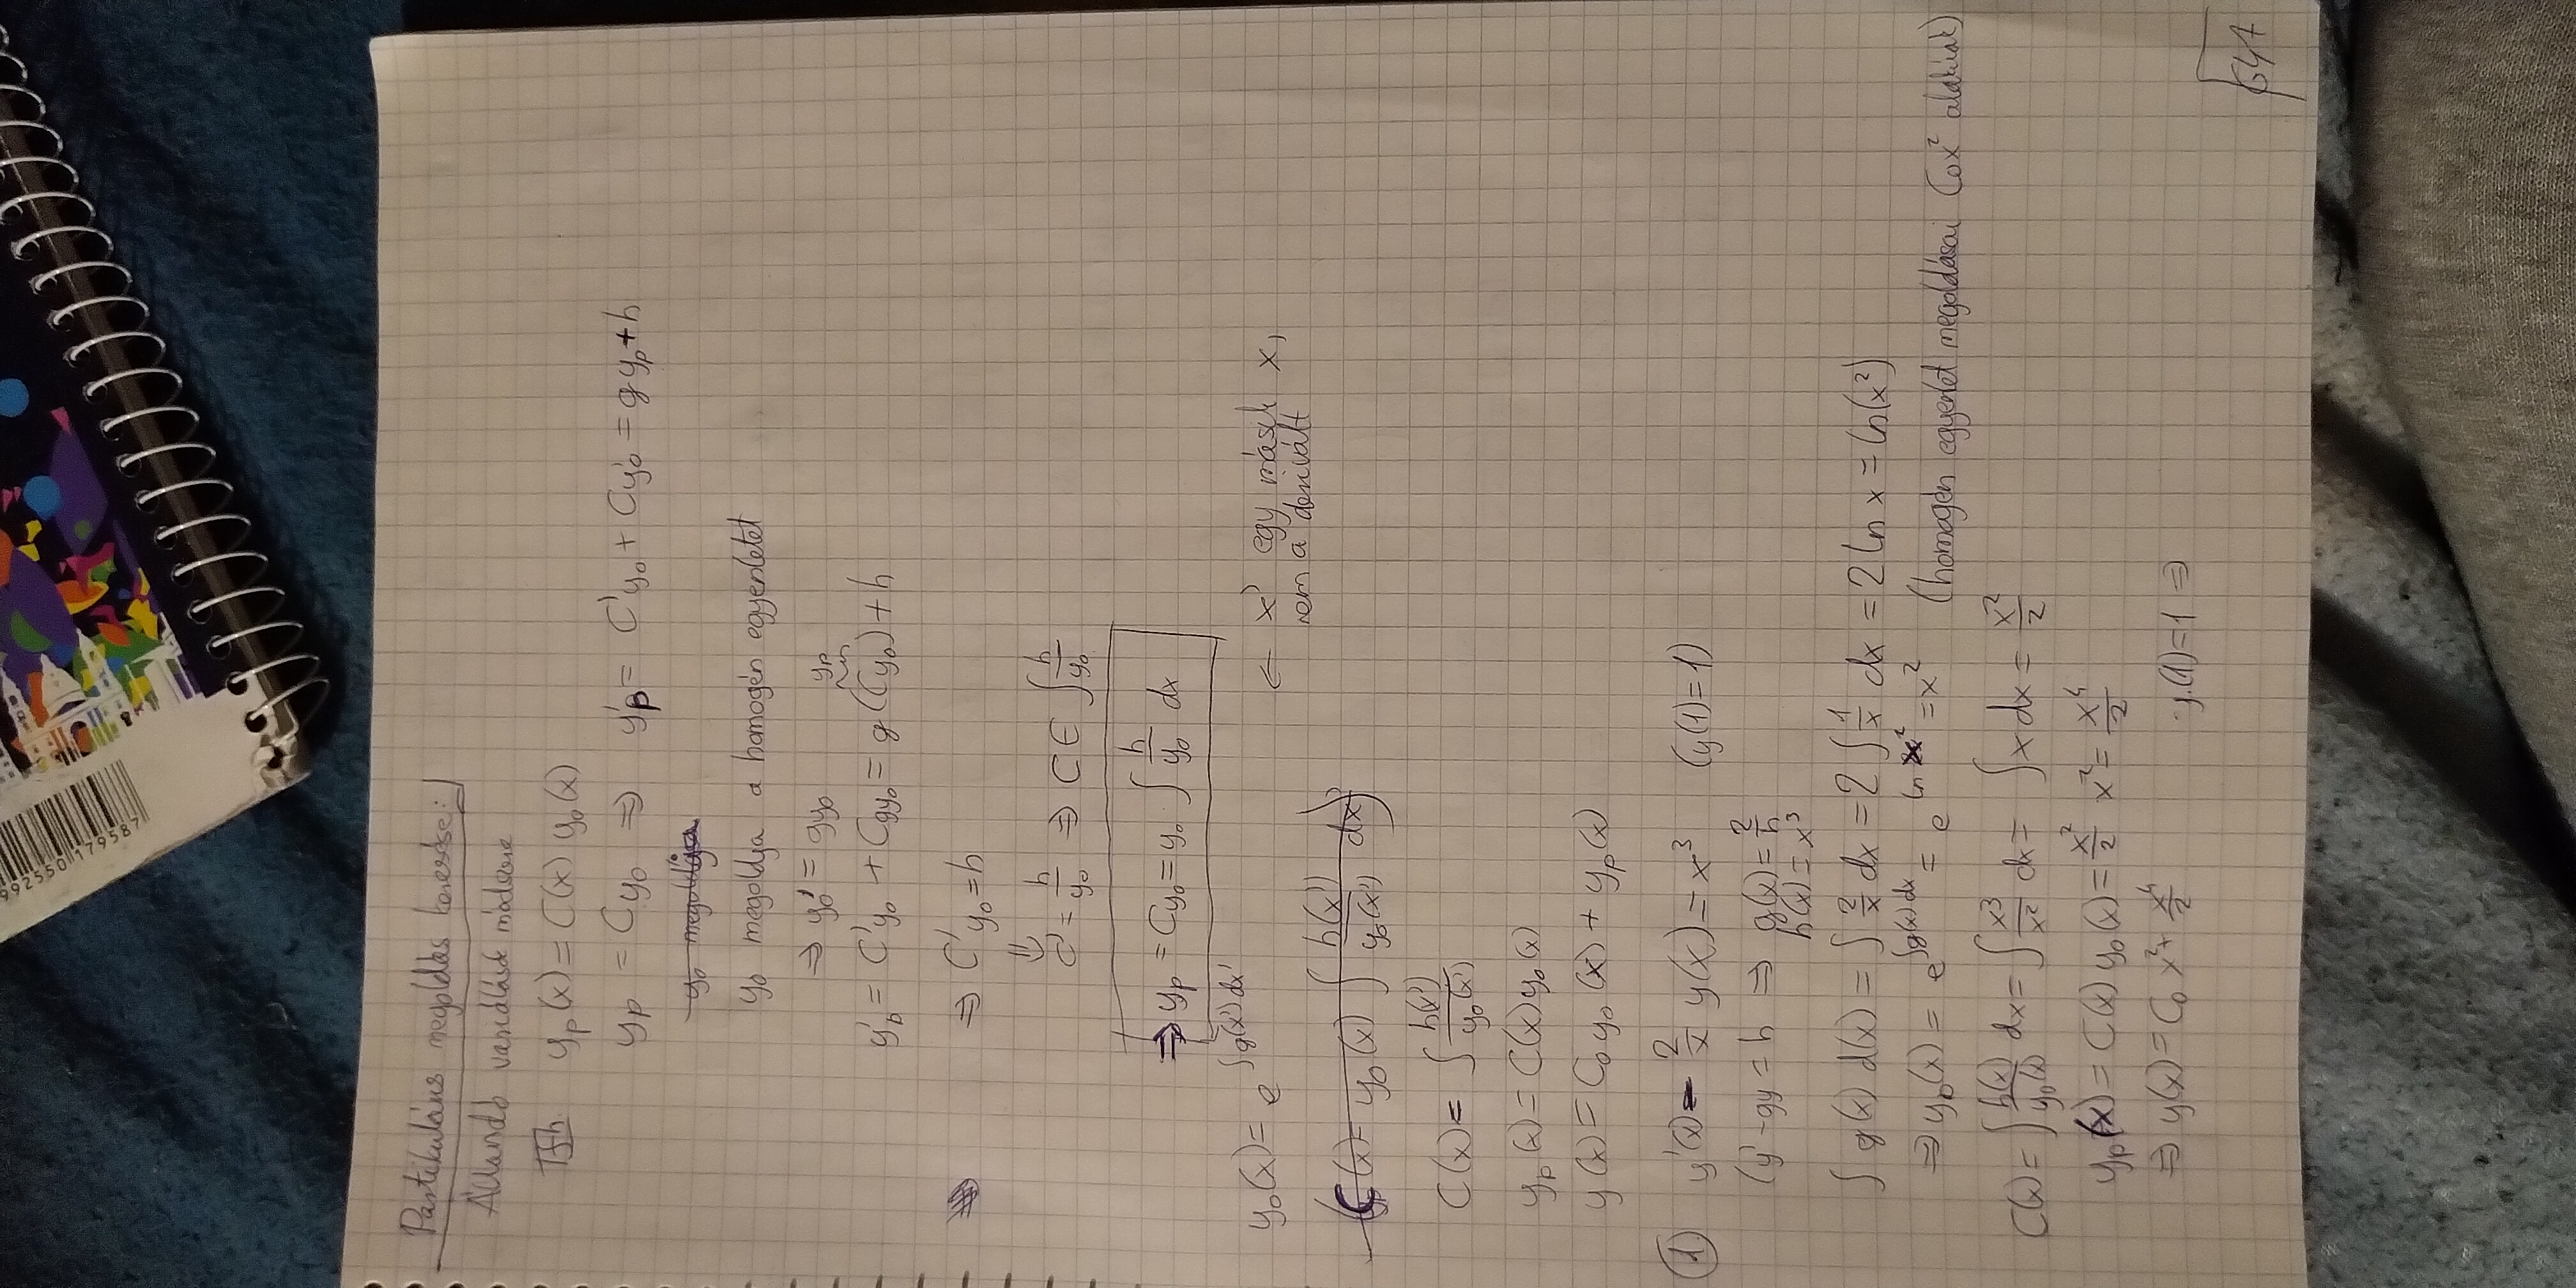 9925501179587
Partikuláris megoldás keresése:
Állandó variálások módszere
Tfh. y_p(x) = C(x) y_0(x)
y_p = Cy_0 ⇒ y'_p = C'y_0 + Cy'_0 = gy_p + h
y_0 megoldása
y_0 megoldja a homogén egyenletet
⇒ y_0' = gy_0
y_p
y'_p = C'y_0 + Cgy_0 = g(Cy_0) + h
⇒ C'y_0 = h
⇓
C' = h/y_0 ⇒ C ∈ ∫ h/y_0
⇒ y_p = Cy_0 = y_0 · ∫ h/y_0 dx
y_0(x) = e^{∫g(x')dx'} ← x' egy másik x,
nem a derivált
(C(x) = y_0(x) ∫ h(x')/y_0(x') dx')
C(x) = ∫ h(x')/y_0(x')
y_p(x) = C(x)y_0(x)
y(x) = C_0 y_0(x) + y_p(x)
1. y'(x) - 2/x y(x) = x^3 (y(1)=1)
(y' - gy = h ⇒ g(x) = 2/h
h(x) = x^3
∫ g(x) d(x) = ∫ 2/x dx = 2 ∫ 1/x dx = 2 ln x = ln(x^2)
⇒ y_0(x) = e^{∫g(x)dx} = e^{ln x^2} = x^2 (homogén egyenlet megoldásai C_0x^2 alakúak)
C(x) = ∫ h(x)/y_0(x) dx = ∫ x^3/x^2 dx = ∫ x dx = x^2/2
y_p(x) = C(x) y_0(x) = x^2/2 x^2 = x^4/2
⇒ y(x) = C_0 x^2 + x^4/2 y(1)=1 ⇒
647